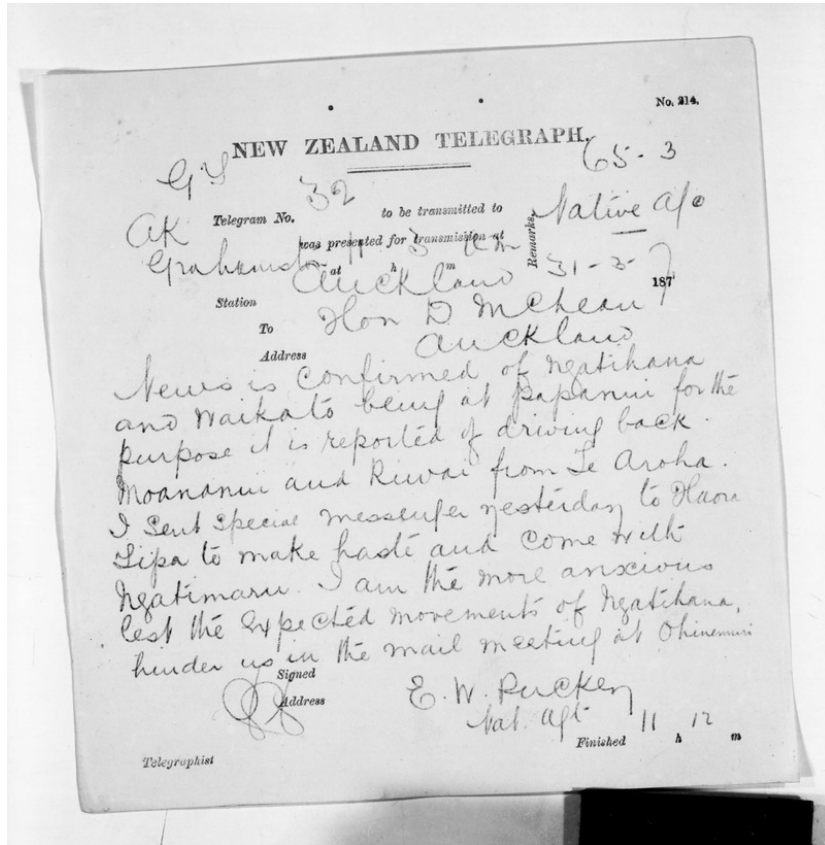 No. 214.
NEW ZEALAND TELEGRAPH.
65-3
Telegram No. 32 to be transmitted to
AK
Remarks. Native A/c
was presented for transmission at
Grahamstn 11 3 am
at h m
Auckland 31-3-187
Station
To Hon D McLean
Address Auckland
News is confirmed of Ngatihaua
and Waikato being at papanui for the
purpose it is reported of driving back
Moananui and Riwai from Te Aroha.
I sent special messenger yesterday to Haora
Tipa to make haste and come with
Ngatimaru. I am the more anxcious
lest the Expected movements of Ngatihaua,
hinder us in the mail meeting at Ohinemuri
Signed
Address E. W. Puckey
Nat. Agt
Finished 11 h 12 m
Telegraphist